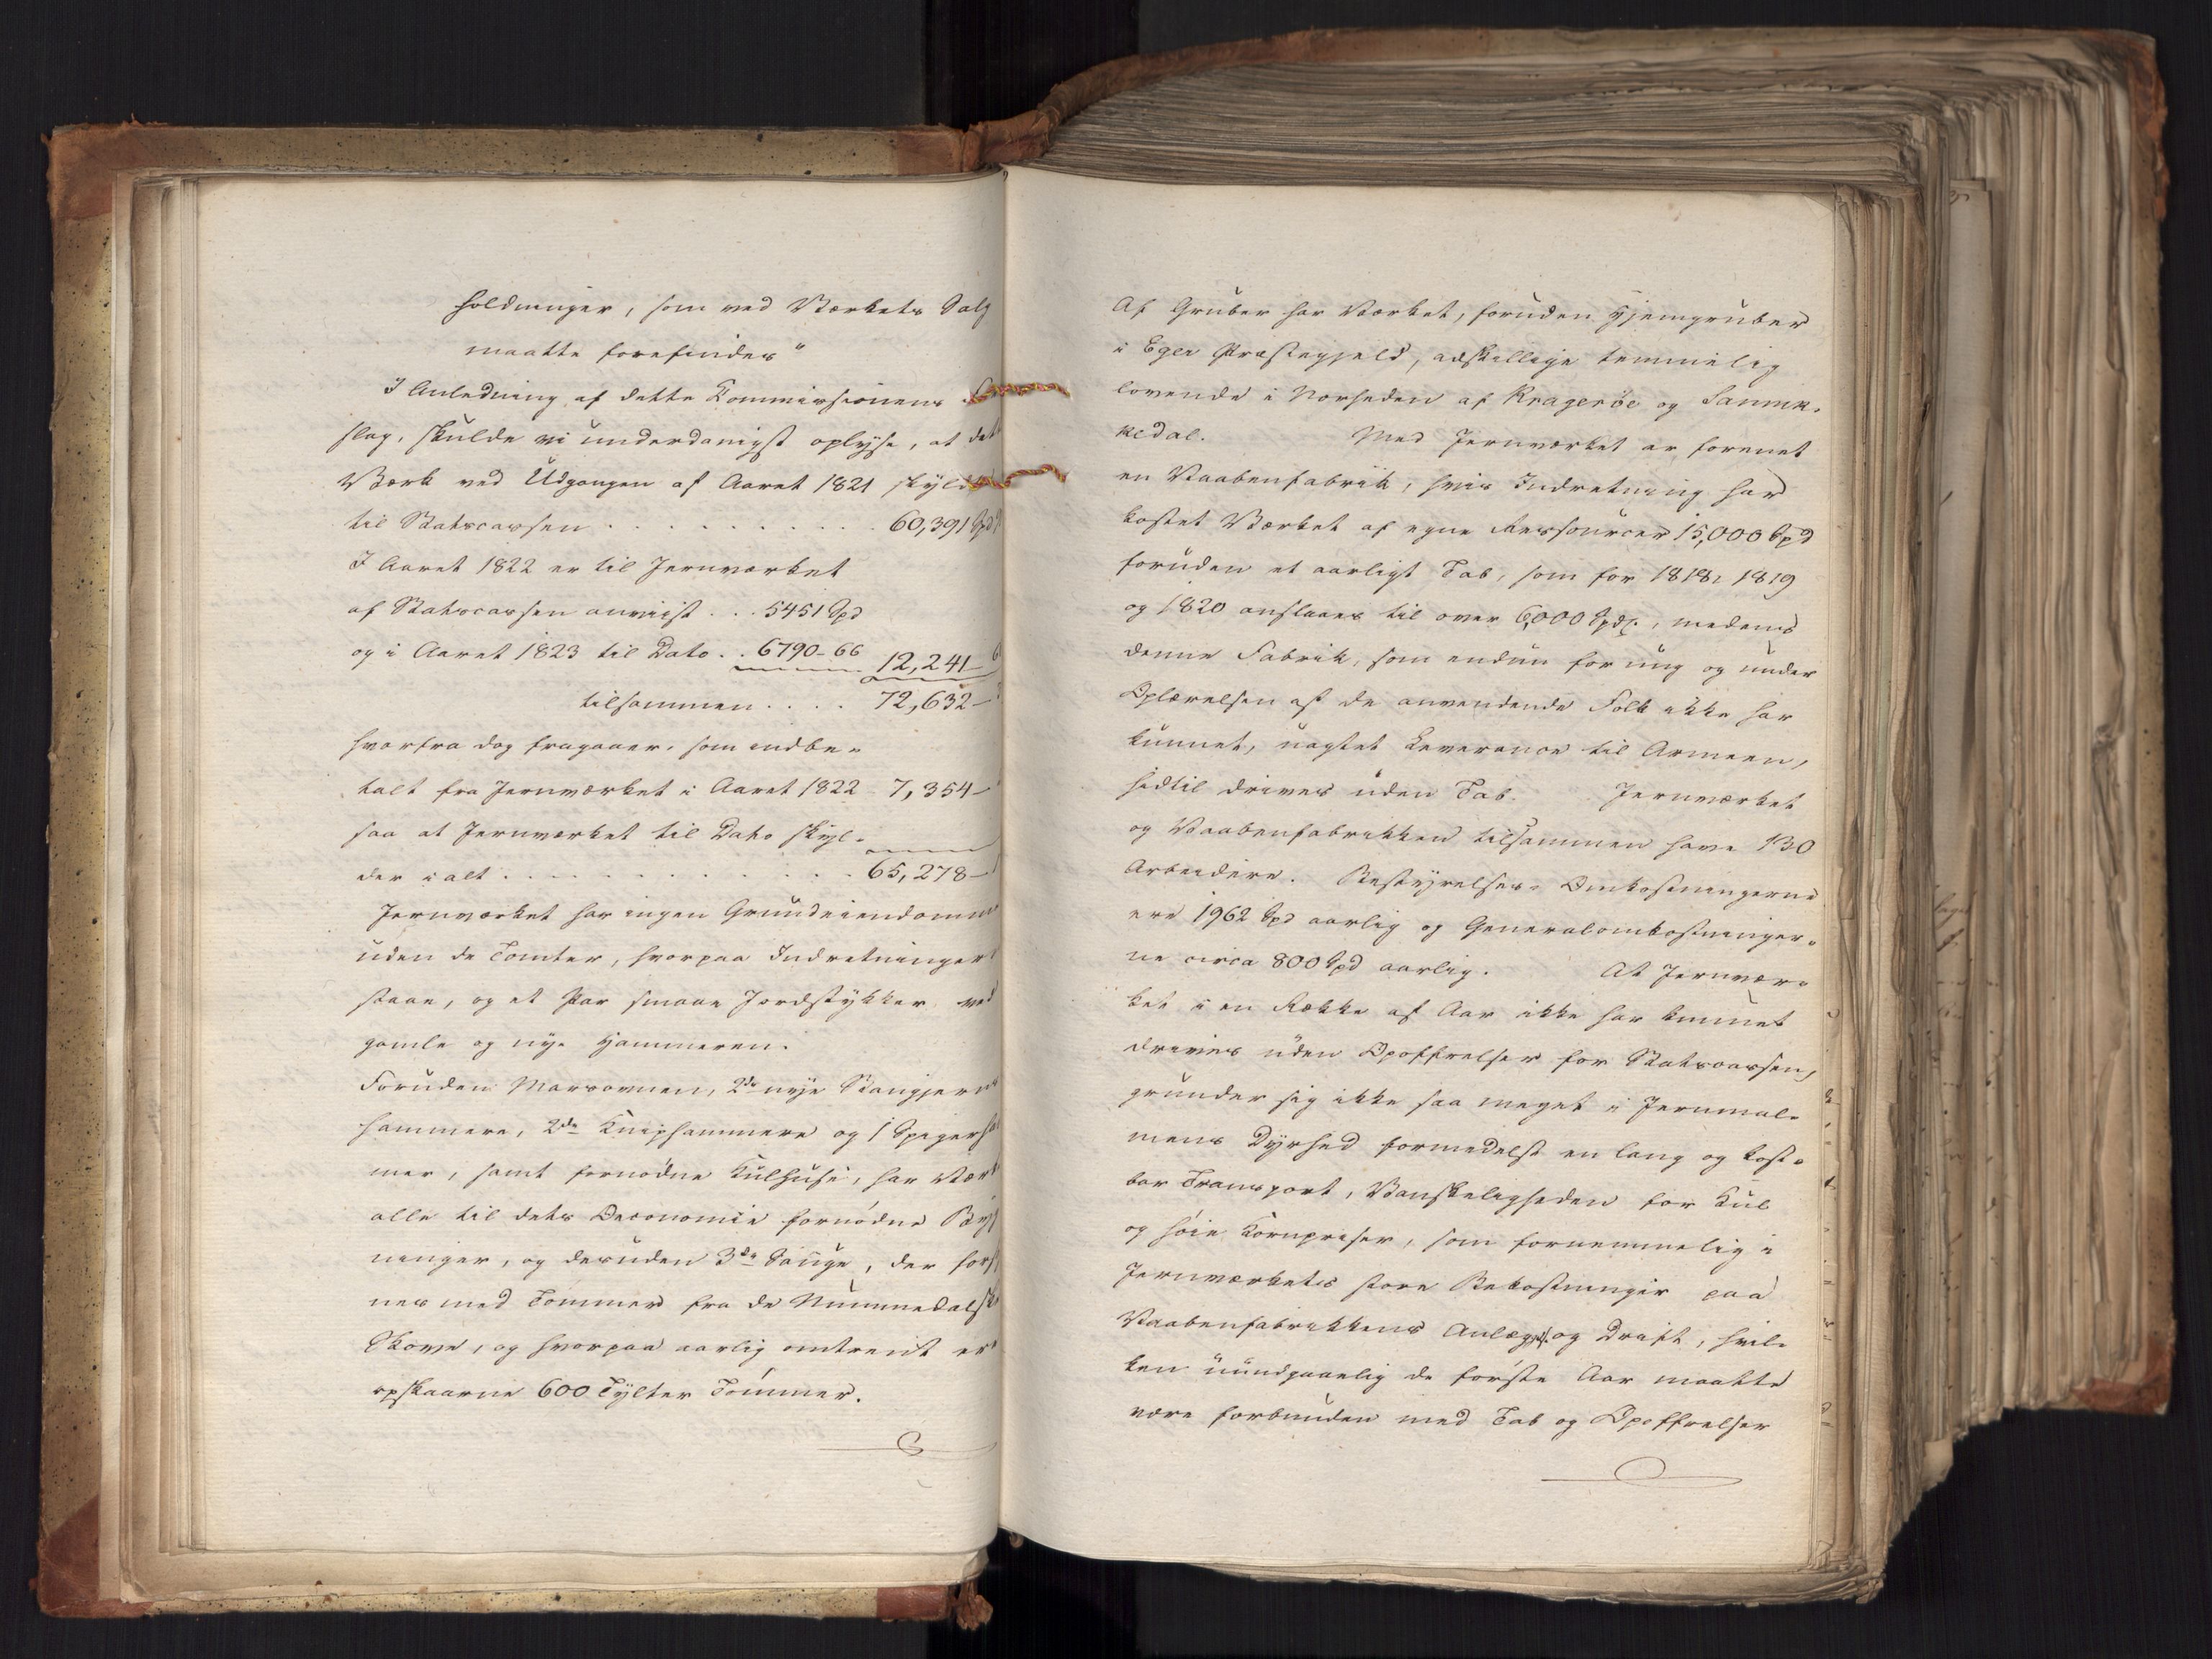 holdninger, som ved Værkets Salg
maatte forefindes"
I Anledning af dette Commissionens
slag, skulde vi underdanigst oplyse, at det
Værk ved Udgangen af Aaret 1821 skyld
til Statscassen . . . . . . . . . 60,391 Spd
I Aaret 1822 er til Jernværket
af Statscassen anviist . . . 5451 Spd
og i Aaret 1823 til Dato . . 6790-66 12,241-6
tilsammen . . . . 72,632-
hvorfra dog fragaaer, som indbe-
talt fra Jernværket i Aaret 1822 7,354-
saa at Jernværket til Dato skyl-
der ialt . . . . . . . . . . . . 65,278-
Jernværket har ingen Grundeiendomme
uden de Tomter, hvorpaa Indretninger
staae, og et Par smaae Jordstykker ved
gamle og nye Hammeren.
Foruden Masovnen, 2de nye Stangjerns
hammere, 2de Kniphammere og 1 Spigerha
mer, samt fornødne Kulhuse, har Værk
alle til dets Oeconomie fornødne Byg
ninger, og desuden 3de Sauge, der fors
nes med Tømmer fra de Nummedalske
Skove, og hvorpaa aarlig omtrent er
opskaarne 600 Tylter Tømmer.
Af Gruber har Værket, foruden Hjemgruber
i Eger Præstegjeld, adskillige temmelig
lovende i Nærheden af Kragerøe og Sannik-
kedal. Med Jernværket er forenet
en Vaabenfabrik, hvis Indretning har
kostet Værket af egne Ressourcer 15,000 Spd
foruden et aarligt Tab, som for 1818, 1819
og 1820 anslaaes til over 6,000 Spd, medens
denne Fabrik, som endnu for ung og under
Oplærelsen af de anvendende Folk ikke har
kunnet, uagtet Leverance til Armeen,
hidtil drives uden Tab. Jernværket
og Vaabenfabrikken tilsammen have 130
Arbeidere. Bestyrelses-Omkostningerne
ere 1962 Spd aarlig og Generalomkostninger-
ne circa 800 Spd aarlig. At Jernvær-
ket i en Række af Aar ikke har kunnet
drives uden Opoffrelser for Statscassen,
grunder sig ikke saa meget i Jernmal-
mens Dyrhed formedelst en lang og kost-
bar Transport, Vanskeligheden for Kul
og høie Kornpriser, som fornemmelig i
Jernværkets store Bekostninger paa
Vaabenfabrikkens Anlæg og Drift, hvil-
ken uundgaaelig de første Aar maatte
være forbunden med Tab og Opoffrelser